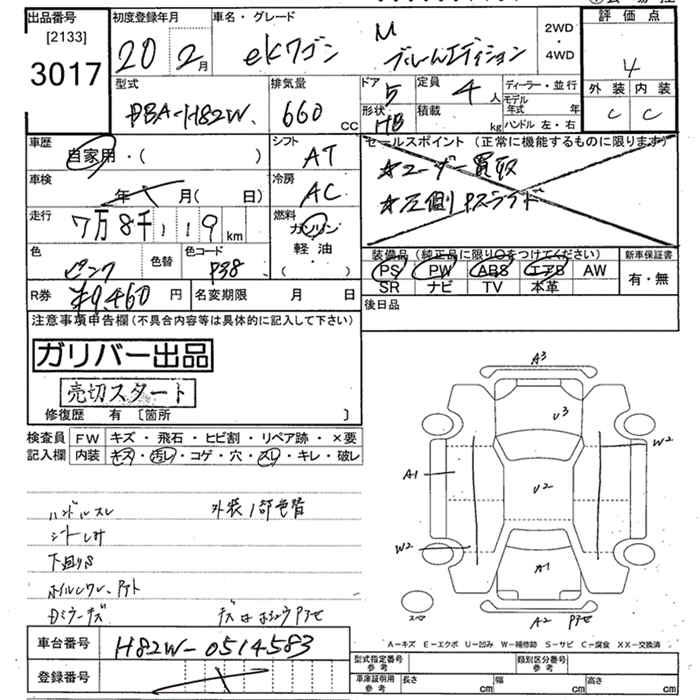 出品番号
[2133]
3017
初度登録年月
20 2月
車名・グレード
ekワゴン M
ブルームエディション
2WD
・
4WD
評価点
4
外装 内装
C C
型式
DBA-H82W
排気量
660 cc
ドア
5
形状
HB
定員
4人
積載
kg
ディーラー・並行
モデル年式 年
ハンドル 左・右
車歴
自家用・( )
シフト
AT
セールスポイント(正常に機能するものに限ります)
☆ユーザー買取
☆左側Pスライド
車検
年 月(日)
冷房
AC
走行
7万8千119km
燃料
ガソリン
軽油
・( )
色
ピンク
色替
色コード
P38
装備品(純正品に限り○をつけてください)
PS PW ABS エアB AW
SR ナビ TV 本革
新車保証書
有・無
R券 ¥9,460円
名変期限 月 日
後日品
注意事項申告欄(不具合内容等は具体的に記入して下さい)
ガリバー出品
売切スタート
修復歴 有 〔箇所 〕
検査員記入欄
FW キズ・飛石・ヒビ割・リペア跡・×要
内装 キズ・汚レ・コゲ・穴・スレ・キレ・破レ
ハンドルスレ 外装1部色替
シートシミ
下回りS
Dミラーキズ
A3
V3
W2
A1
V2
W2
A1
スペア
A2
A=キズ E=エクボ U=凹み W=補修跡 S=サビ C=腐食 XX=交換済
車台番号 H82W-0514583
登録番号
型式指定番号
参考
類別区分番号
参考
車庫証明用
参考
長さ cm
幅 cm
高さ cm